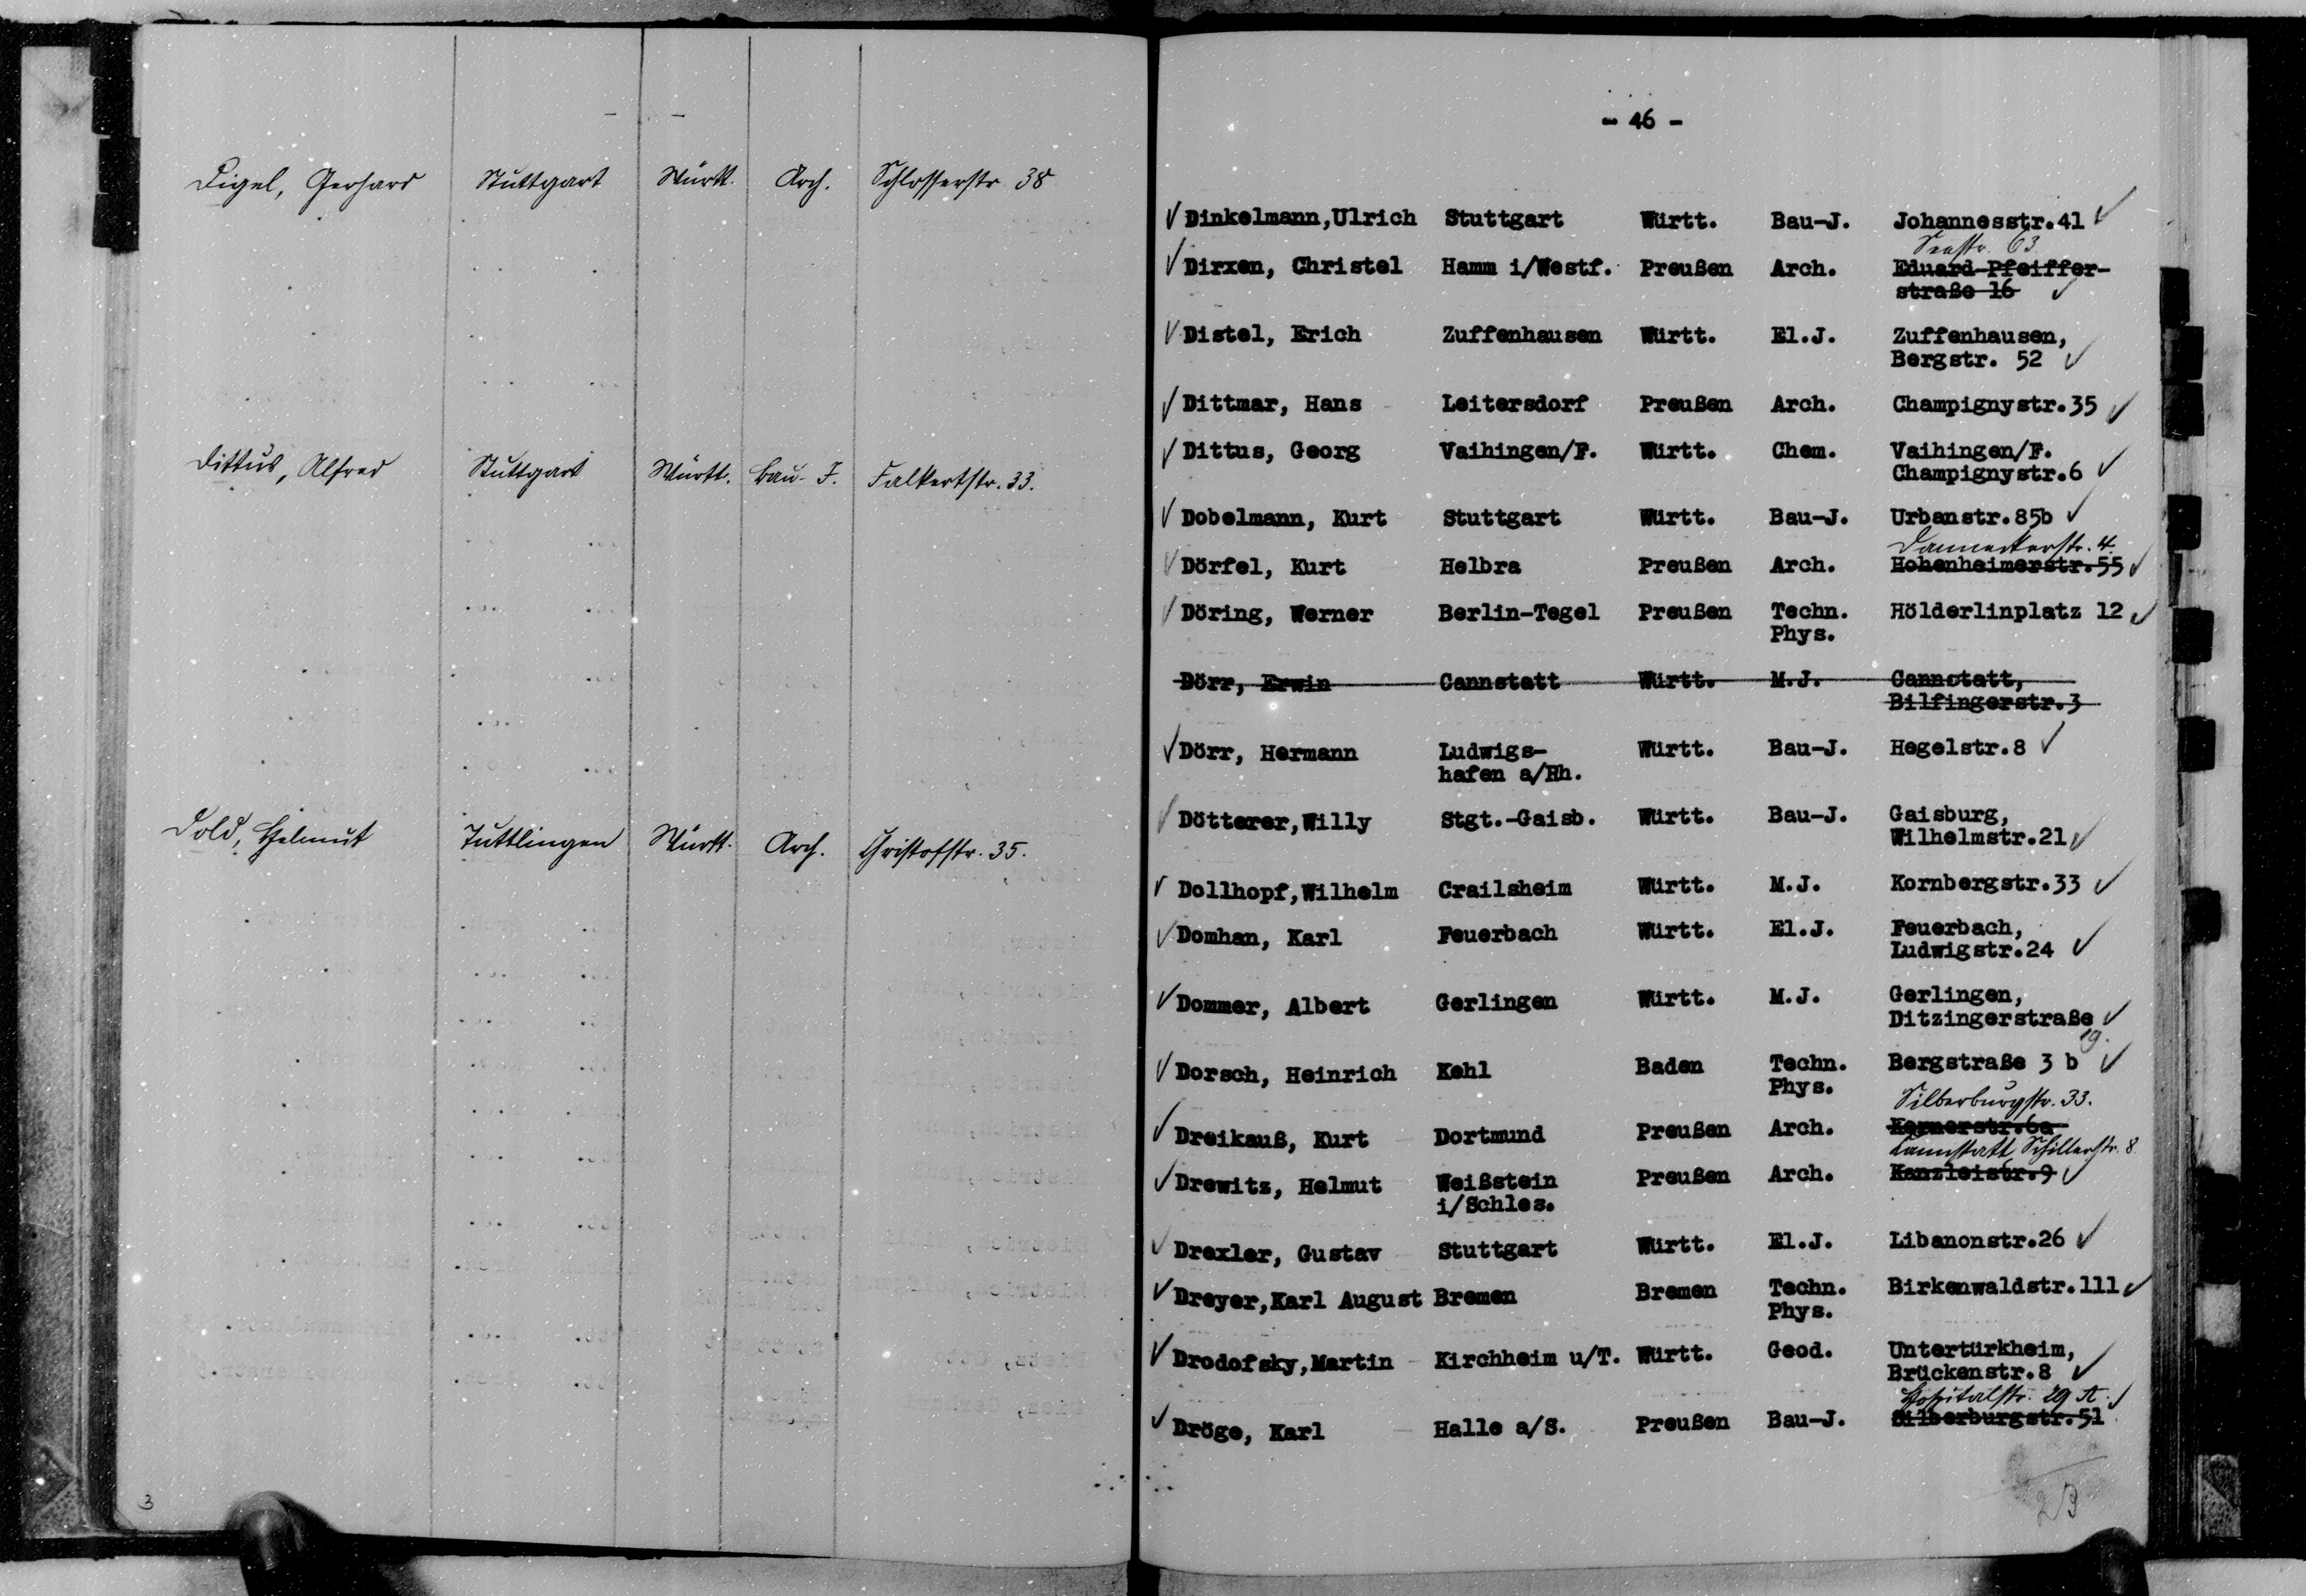 Digel, Gerhard Stuttgart Württ. Arch. Schlosserstr 38
Dittus, Alfred Stuttgart Württ. Bau-J. Falkertstr. 33.
Dold, Helmut Tuttlingen Württ. Arch. Christofstr. 35.
3
- 46 -
Dinkelmann,Ulrich Stuttgart Württ. Bau-J. Johannesstr.41
Seestr. 63
Dirxen, Christel Hamm i/Westf. Preußen Arch. Eduard-Pfeiffer-
straße 16
Distel, Erich Zuffenhausen Württ. El.J. Zuffenhausen,
Bergstr. 52
Dittmar, Hans Leitersdorf Preußen Arch. Champignystr.35
Dittus, Georg Vaihingen/F. Württ. Chem. Vaihingen/F.
Champignystr.6
Dobelmann, Kurt Stuttgart Württ. Bau-J. Urbanstr.85b
Danneckerstr. 4.
Dörfel, Kurt Helbra Preußen Arch. Hohenheimerstr.55
Döring, Werner Berlin-Tegel Preußen Techn. Hölderlinplatz 12
Phys.
Dörr, Erwin Cannstatt Württ. M.J. Cannstatt,
Bilfingerstr.3
Dörr, Hermann Ludwigs- Württ. Bau-J. Hegelstr.8
hafen a/Rh.
Dötterer,Willy Stgt.-Gaisb. Württ. Bau-J. Gaisburg,
Wilhelmstr.21
Dollhopf,Wilhelm Crailsheim Württ. M.J. Kornbergstr.33
Domhan, Karl Feuerbach Württ. El.J. Feuerbach,
Ludwigstr.24
Dommer, Albert Gerlingen Württ. M.J. Gerlingen,
Ditzingerstraße
19.
Dorsch, Heinrich Kehl Baden Techn. Bergstraße 3 b
Phys.
Silberburgstr. 33.
Dreikauß, Kurt Dortmund Preußen Arch. Kernerstr.6a
Cannstatt Schillerstr. 8
Drewitz, Helmut Weißstein Preußen Arch. Kanzleistr.9
i/Schles.
Drexler, Gustav Stuttgart Württ. El.J. Libanonstr.26
Dreyer,Karl August Bremen Bremen Techn. Birkenwaldstr.111
Phys.
Drodofsky,Martin Kirchheim u/T. Württ. Geod. Untertürkheim,
Brückenstr.8
Hospitalstr. 29 A.
Dröge, Karl Halle a/S. Preußen Bau-J. Silberburgstr.51